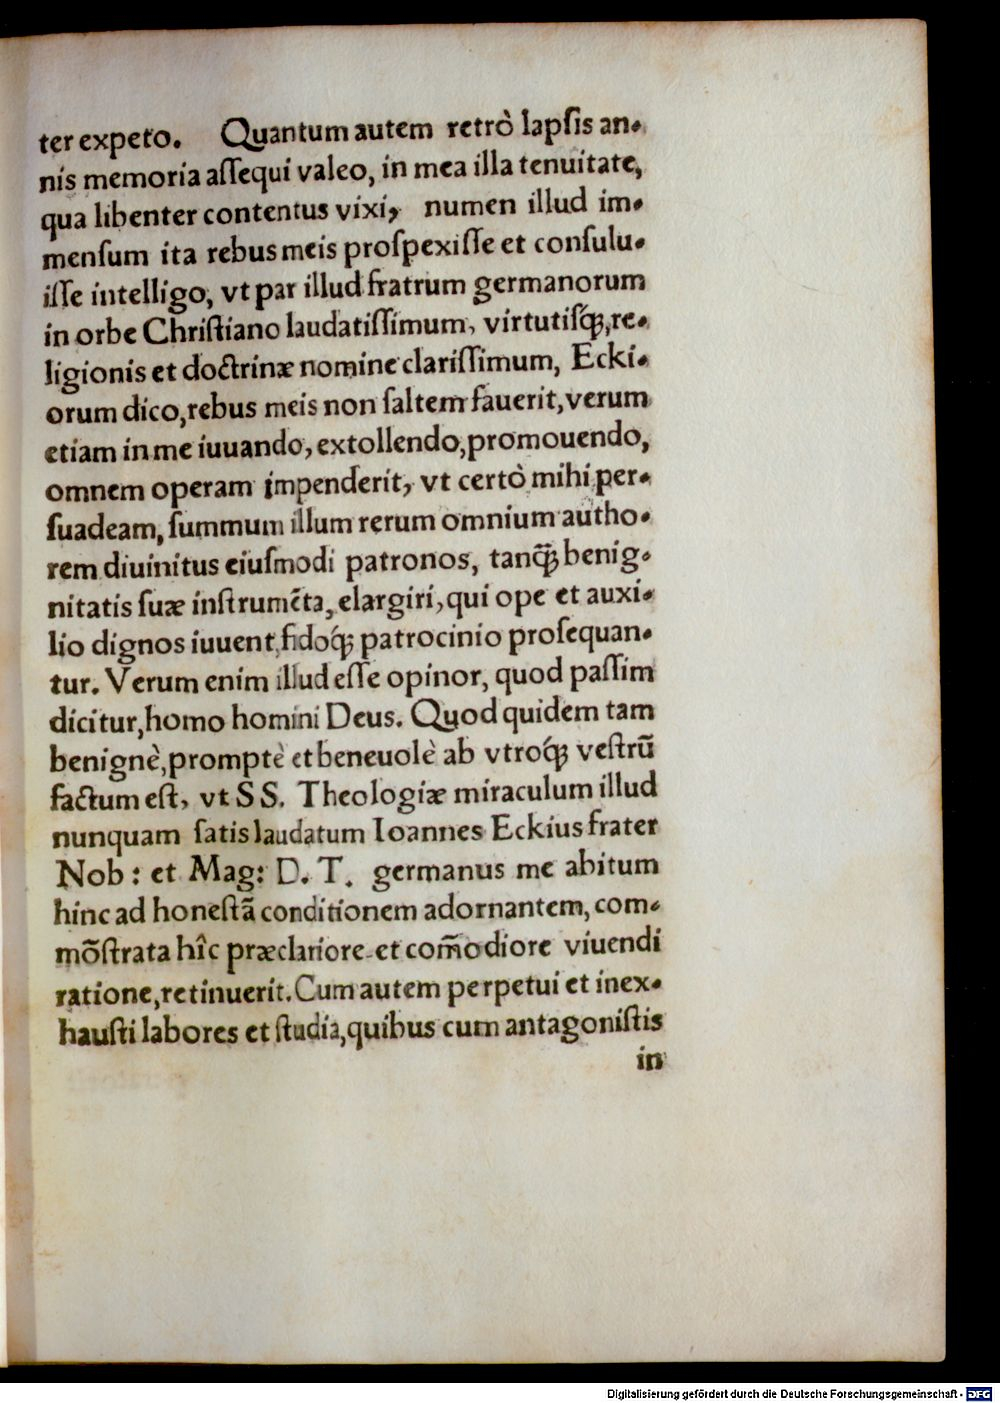 ter expeto. Quantum autem retrò lapſis an-
nis memoria aſſequi valeo, in mea illa tenuitate,
qua libenter contentus vixi, numen illud im-
menſum ita rebus meis proſpexiſſe et conſulu-
iſſe intelligo, vt par illud fratrum germanorum
in orbe Chriſtiano laudatiſſimum, virtutiſq́ꝫ, re-
ligionis et doctrinæ nomine clariſſimum, Ecki-
orum dico, rebus meis non ſaltem fauerit, verum
etiam in me iuuando, extollendo, promouendo,
omnem operam impenderit, vt certò mihi per-
ſuadeam, ſummum illum rerum omnium autho-
rem diuinitus eiuſmodi patronos, tanq̃ꝫ benig-
nitatis ſuæ inſtrumẽta, elargiri, qui ope et auxi-
lio dignos iuuent, fidoq́ꝫ patrocinio proſequan-
tur. Verum enim illud eſſe opinor, quod paſſim
dicitur, homo homini Deus. Quod quidem tam
benignè, promptè et beneuolè ab vtroq́ꝫ veſtrũ
factum eſt, vt SS. Theologiæ miraculum illud
nunquam ſatis laudatum Ioannes Eckius frater
Nob: et Mag: D. T. germanus me abitum
hinc ad honeſtã conditionem adornantem, com-
mõſtrata hîc præclariore et com̃odiore viuendi
ratione, retinuerit. Cum autem perpetui et inex-
hauſti labores et ſtudia, quibus cum antagoniſtis
in
Digitalisierung gefördert durch die Deutsche Forschungsgemeinschaft - DFG